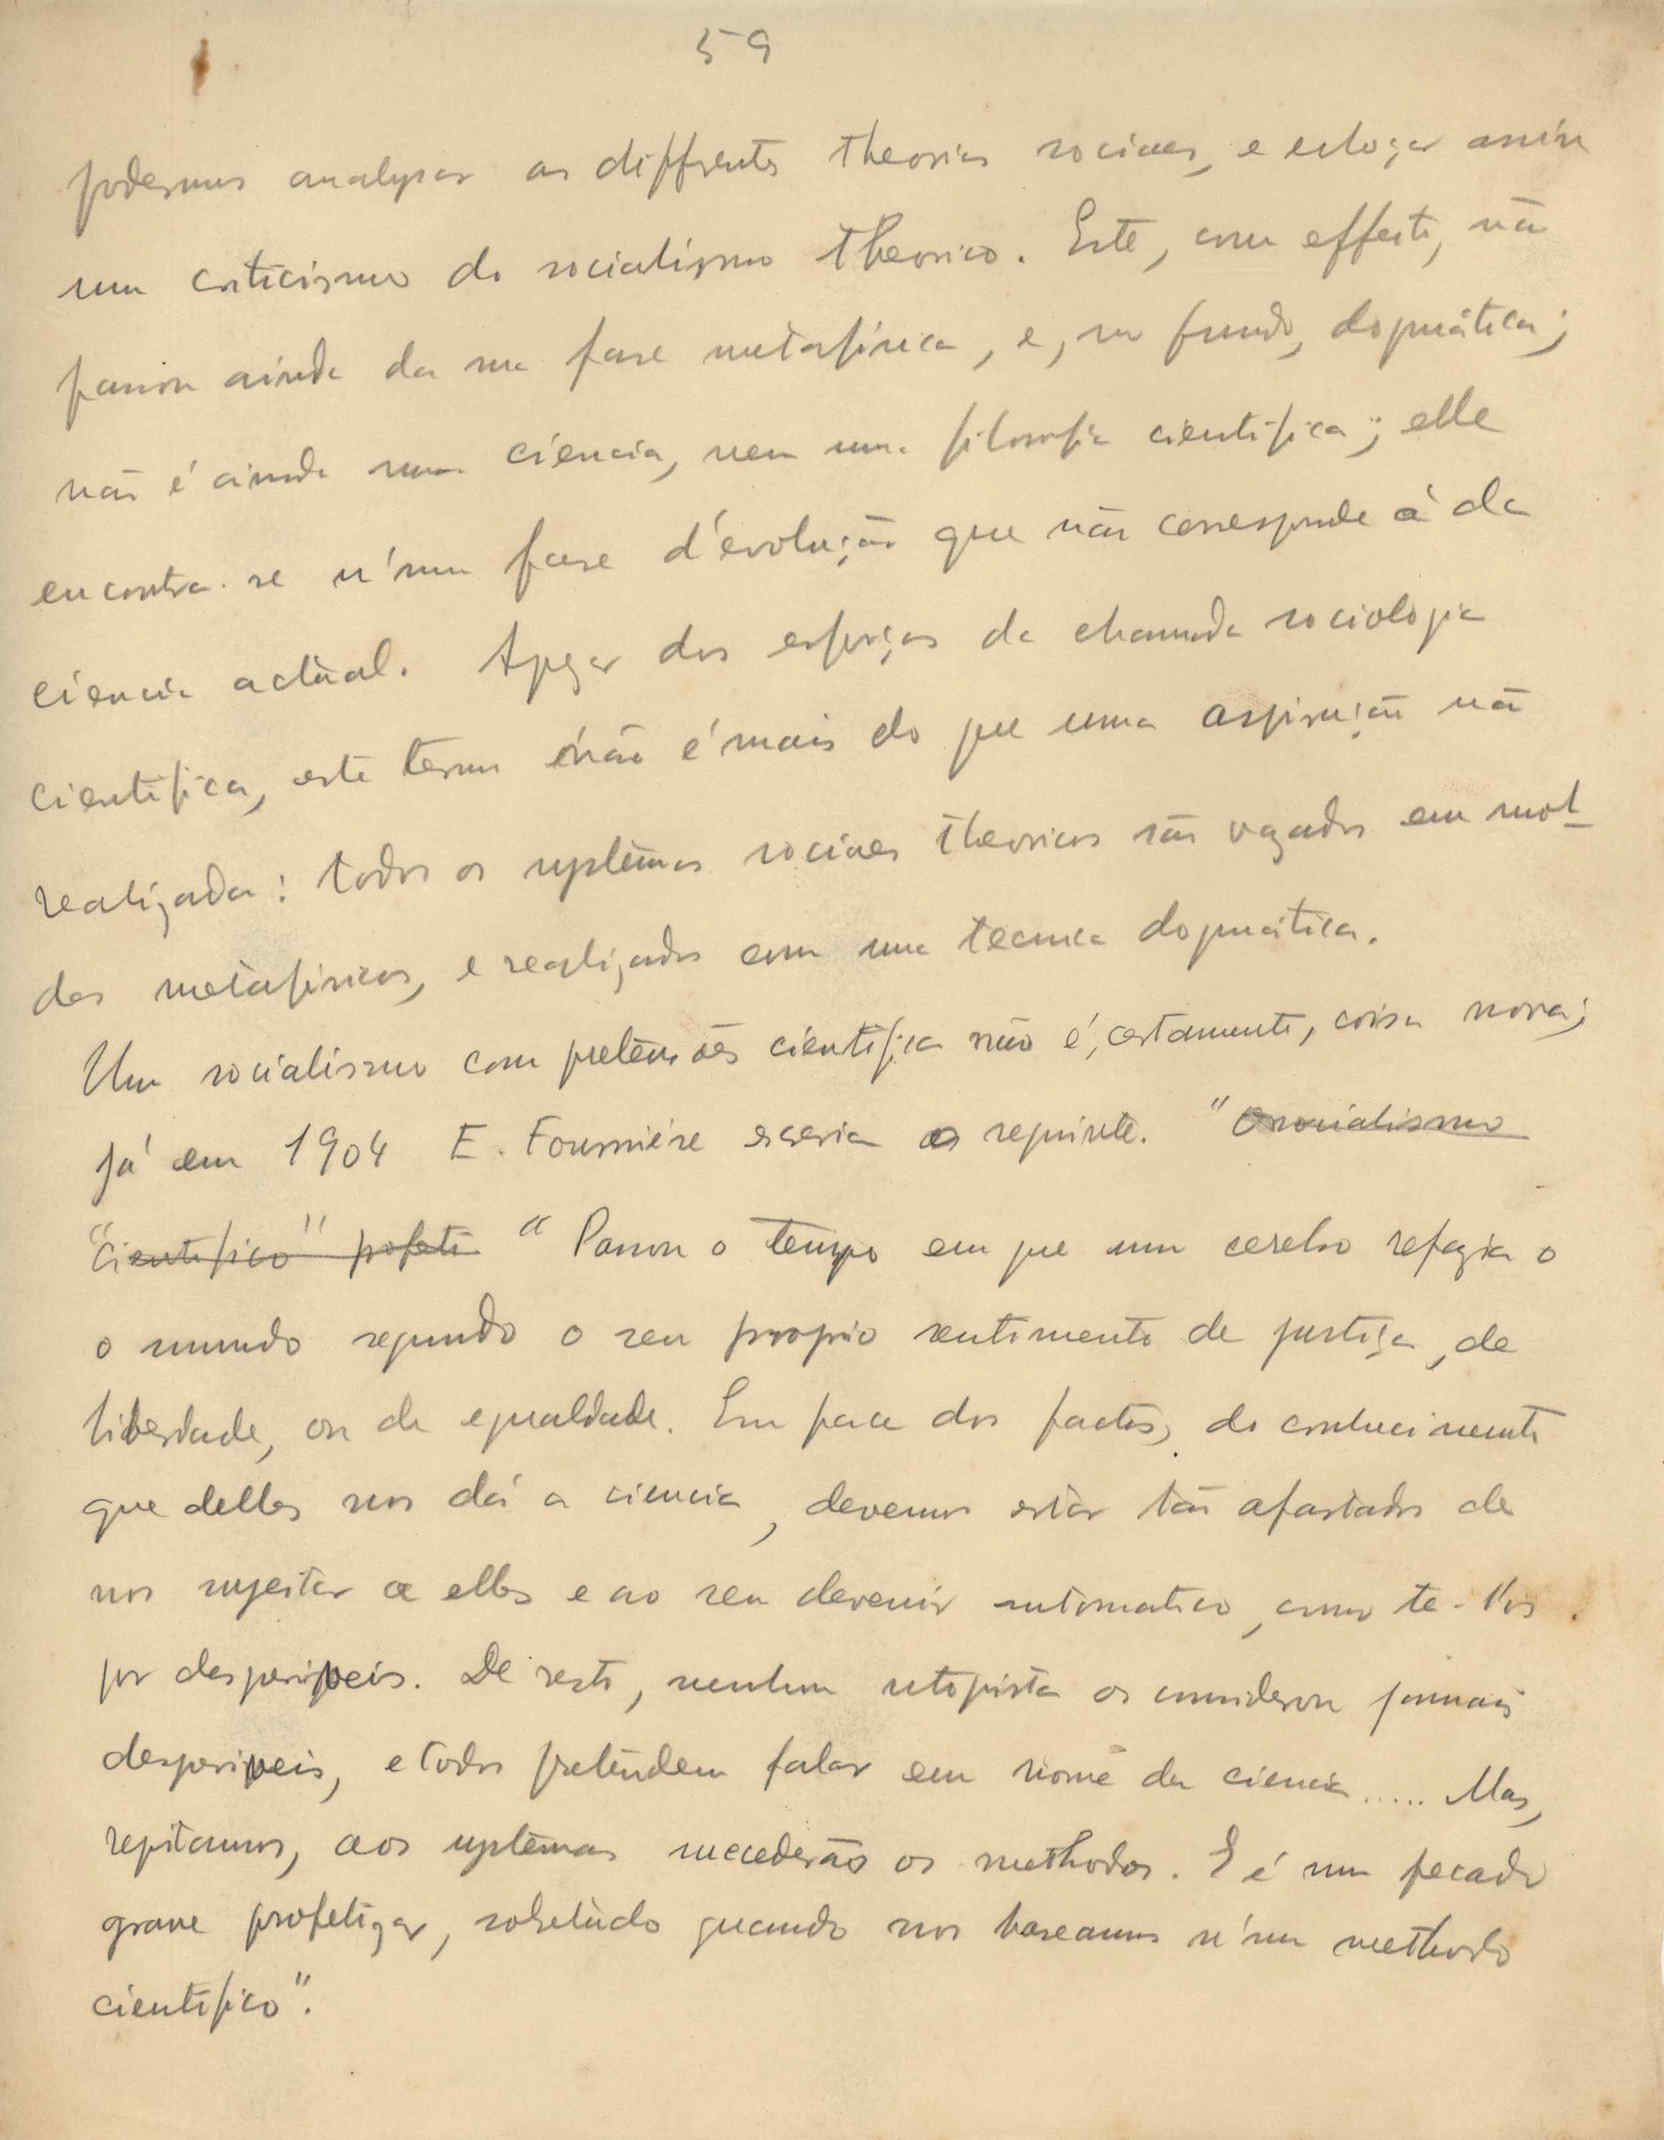 59
podermos analysar as differentes theorias sociaes, e esboçar assim
um criticismo do socialismo theorico. Este, com effeito, não
passou ainda da sua fase metafísica, e, no fundo, dogmática;
não é ainda uma ciencia, nem uma filosofia cientifica; elle
encontra-se n'uma fase d'evolução que não corresponde á da
ciencia actual. Apezar dos esforços da chamada sociologia
cientifica, este termo não é mais do que uma aspiração não
realizada: todos os systêmas sociaes theoricos são vazados em mol-
des metafísicos, e realizados com uma tecnica dogmática.
Um socialismo com pretensões cientifica não é, certamente, coisa nova;
já em 1904 E. Fournière escevia o seguinte. "O socialismo
"Cientifico" profeti "Passou o tempo em que um cerebro refazia o
o mundo segundo o seu proprio sentimento de justiça, de
liberdade, ou de egualdade. Em face dos factos, do conhecimento
que delles nos dá a ciencia, devemos estar tão afastados de
nos sujeitar a elles e ao seu devenir automatico, como te-l'os
por desponiveis. De resto, nenhum utopista os considerou jamais
desponiveis, e todos pretendem falar em nome da ciencia..... Mas,
repitamos, aos systêmas sucederão os methodos. E é um pecado
grave profetizar, sobretudo quando nos baseamos n'um methodo
cientifico".